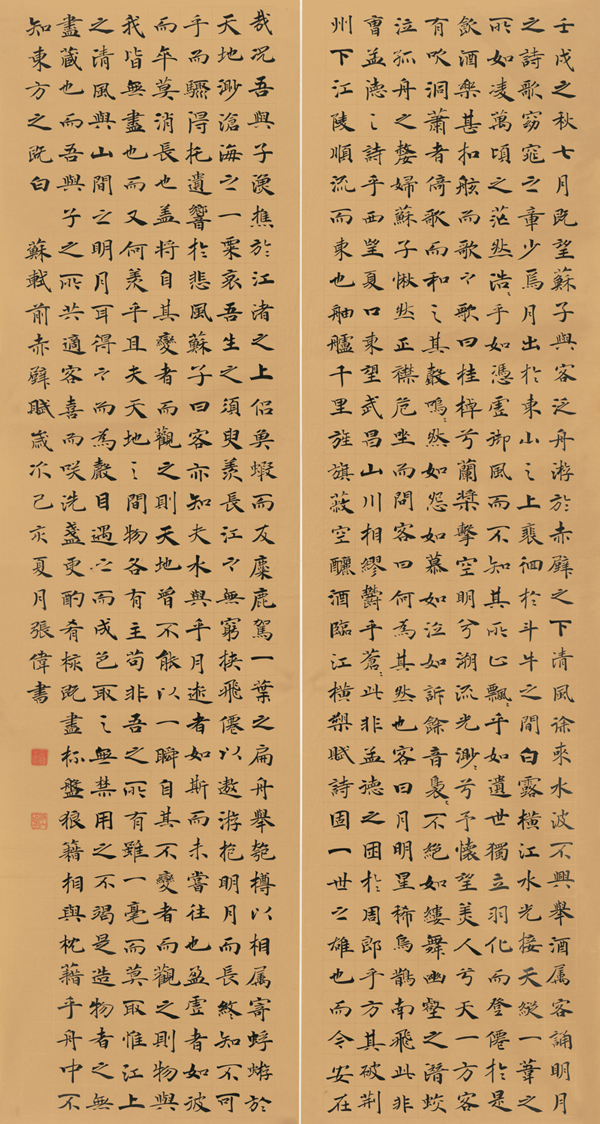 壬戌之秋七月既望蘇子與客泛舟游於赤壁之下清風徐來水波不興舉酒属客誦明月
之詩歌窈窕之章少焉月出於東山之上裴徊於斗牛之間白露橫江水光接天縱一葦之
所如凌萬頃之茫然浩々乎如憑虛御風而不知其所止飄々乎如遺世獨立羽化而登僊於是
飲酒樂甚扣舷而歌之歌曰桂棹兮蘭槳擊空明兮溯流光渺々兮予懷望美人兮天一方客
有吹洞蕭者倚歌而和之其聲嗚々然如怨如慕如泣如訴餘音裊々不絕如縷舞幽壑之潛蛟
泣孤舟之嫠婦蘇子愀然正襟危坐而問客曰何為其然也客曰月明星稀烏鵲南飛此非
曹孟德之詩乎西望夏口東望武昌山川相繆鬱乎蒼々此非孟德之困於周郎乎方其破荊
州下江陵順流而東也舳艫千里旌旗蔽空釃酒臨江橫槊賦詩固一世之雄也而今安在
哉況吾與子漁樵於江渚之上侶魚蝦而友麋鹿駕一葉之扁舟舉匏樽以相属寄蜉蝣於
天地渺滄海之一粟哀吾生之須臾羨長江之無窮挾飛僊以遨游抱明月而長終知不可
乎而驟得托遺響於悲風蘇子曰客亦知夫水與乎月逝者如斯而未嘗往也盈虛者如彼
而卒莫消長也蓋將自其變者而觀之則天地曾不能以一瞬自其不變者而觀之則物與
我皆無盡也而又何羨乎且夫天地之間物各有主苟非吾之所有雖一毫而莫取惟江上
之清風與山間之明月耳得之而為聲目遇之而成色取之無禁用之不竭是造物者之無
盡藏也而吾與子之所共適客喜而咲洗盞更酌肴核既盡杯盤狼籍相與枕藉乎舟中不
知東方之既白 蘇軾前赤壁賦歲次己亥夏月張偉書